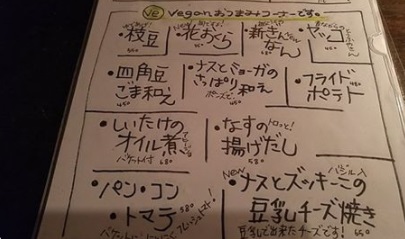 ve Vegan おつまみコーナーです。
・枝豆 ・花おくら ・新ぎんなん ・ヤッコ
・四角豆ごま和え ・ナスとミョーガのさっぱり和え ・フライドポテト
・しいたけのオイル煮 バケット付 580 ・なすの揚げだし 580
・パン・コン・トマテ New ・ナスとズッキーニの豆乳チーズ焼き バジル入
豆乳で出来たチーズです!